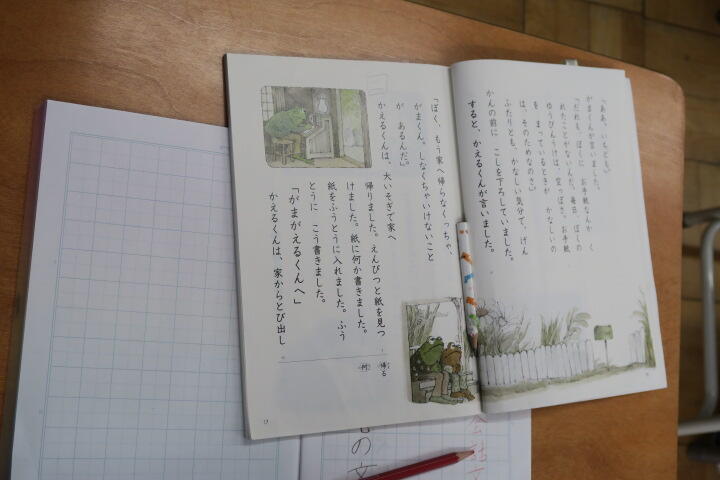 「ああ。いちども。」
がまくんが言いました。
「だれも、ぼくに お手紙なんか く
れたことがないんだ。毎日、ぼくの
ゆうびんうけは、空っぽさ。お手紙
を まっているときが かなしいの
は、そのためなのさ。」
ふたりとも、かなしい気分で、げん
かんの前に こしを下ろしていました。
すると、かえるくんが言いました。
「ぼく、もう家へ帰らなくっちゃ、
がまくん。しなくちゃいけないこと
が あるんだ。」
かえるくんは、大いそぎで家へ
帰りました。えんぴつと紙を見つ
けました。紙に何か書きました。
紙をふうとうに入れました。ふう
とうに こう書きました。
「がまがえるくんへ」
かえるくんは、家からとび出し
帰る
何
17
の文
会話文